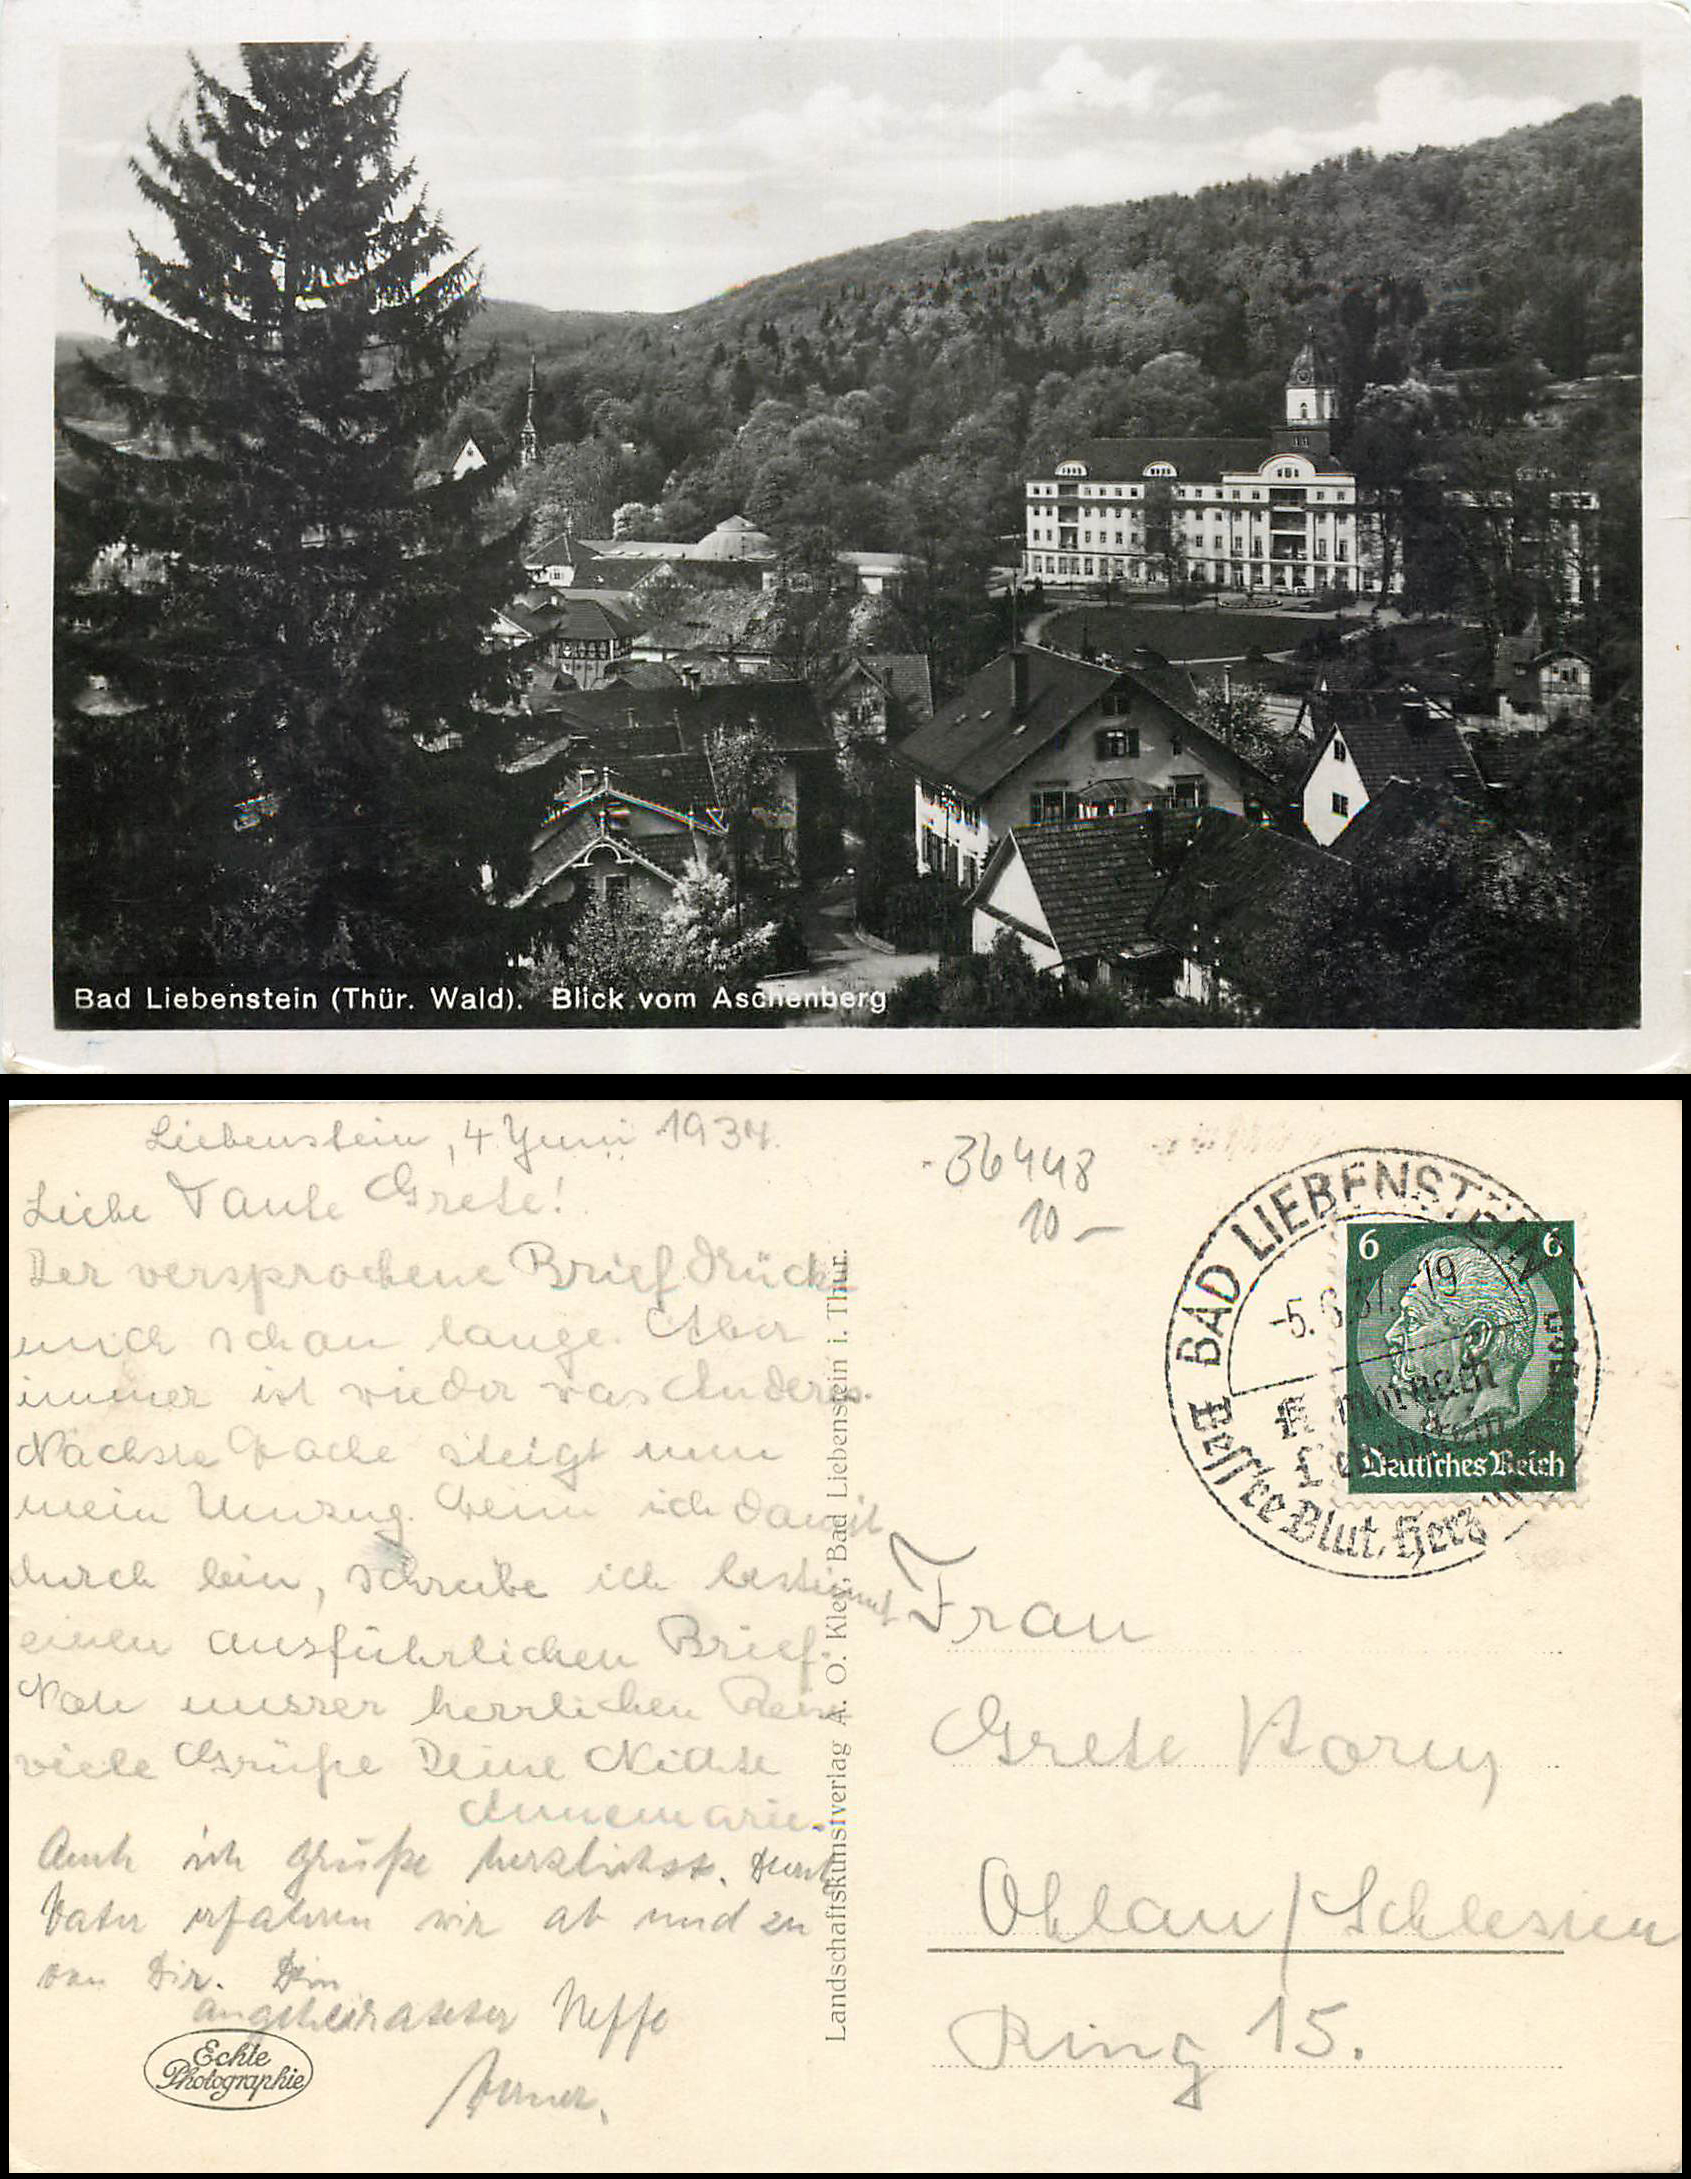 Bad Liebenstein (Thür. Wald). Blick vom Aschenberg
Liebenstein, 4. Juni 1937.
Liebe Tante Grete!
Der versprochene Brief drückt
mich schon lange. Aber
immer ist wieder was Anderes.
Nächste Woche steigt nun
mein Umzug. Wenn ich damit
durch bin, schreibe ich bestimmt
einen ausführlichen Brief.
Von unsrer herrlichen Reise
viele Grüße Deine Nichte
Annemarie.
Auch ich grüße herzlichst. Durch
Vater erfahren wir ab und zu
von Dir. Dein
angeheirateter Neffe
Werner.
Echte
Photographie
Landschaftskunstverlag A. O. Kley, Bad Liebenstein i. Thür.
36448
10 —
BAD LIEBENSTEIN
-5. 6. 37. -19
Blut, Herz
6 6
Deutsches Reich
Frau
Grete
Ohlau/Schlesien
Ring 15.